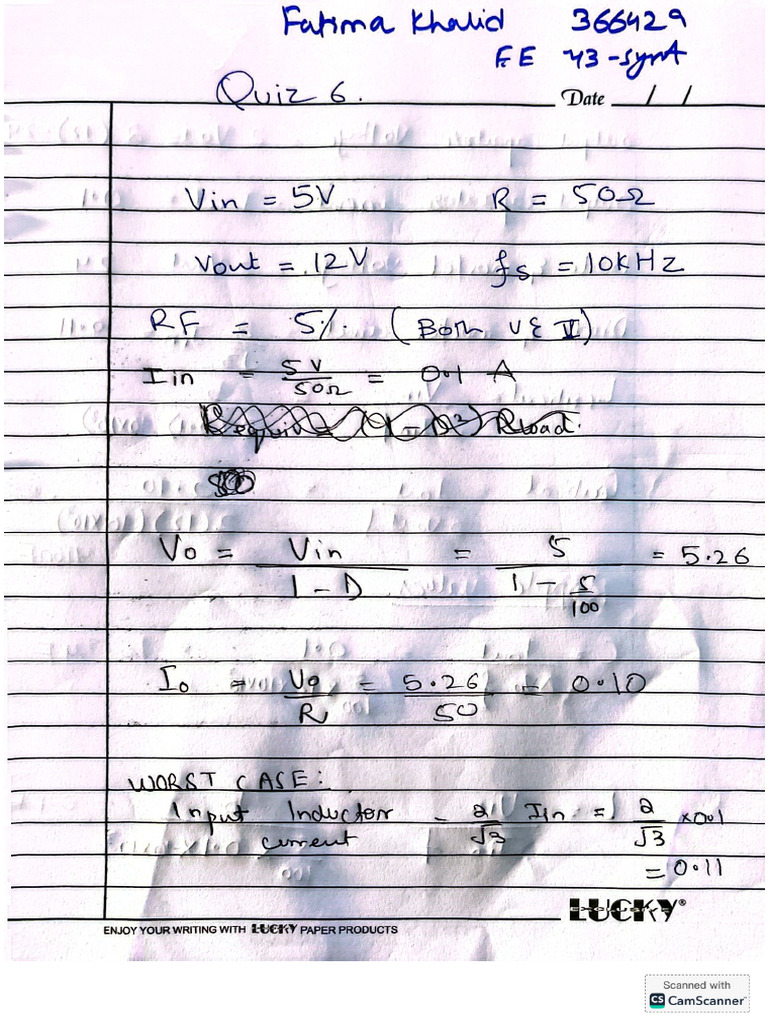 Fatima Khalid 366429
EE 43-synt
Quiz 6.
Date / /
Vin = 5V R = 50Ω
Vout = 12V fs = 10kHz
RF = 5% (Both V & I)
Iin = 5V/50Ω = 0.1 A
Vo = Vin/1-D = 5/1-5/100 = 5.26
Io = Vo/R = 5.26/50 = 0.10
WORST CASE:
Input Inductor current = 2/√3 Iin = 2/√3 x0.1
= 0.11
LUCKY®
ENJOY YOUR WRITING WITH LUCKY PAPER PRODUCTS
Scanned with
CS CamScanner